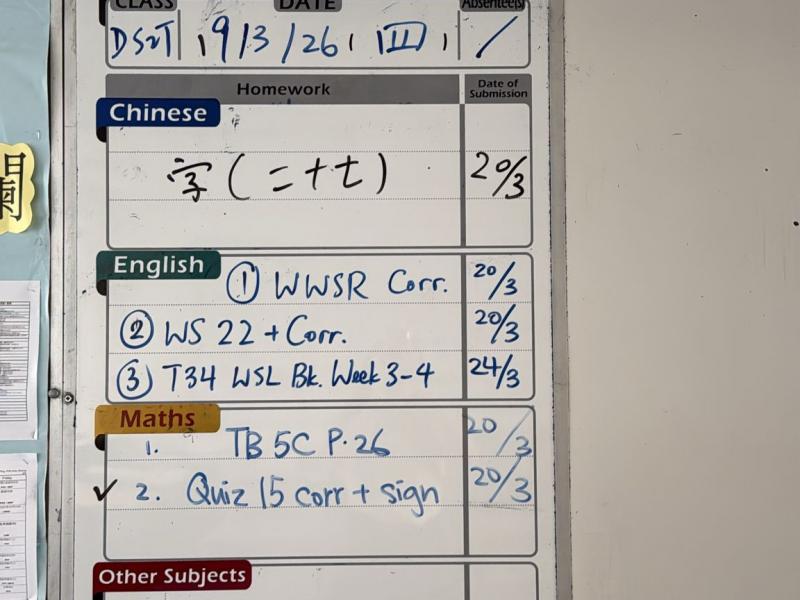 CLASS DATE Absentee(s)
19/3/26 (四) /
Homework Date of Submission
Chinese
字(二十七) 20/3
English
① WWSR Corr. 20/3
② WS 22 + Corr. 20/3
③ T34 WSL Bk. Week 3-4 24/3
Maths
1. TB 5C P.26 20/3
✓ 2. Quiz 15 corr + sign 20/3
Other Subjects